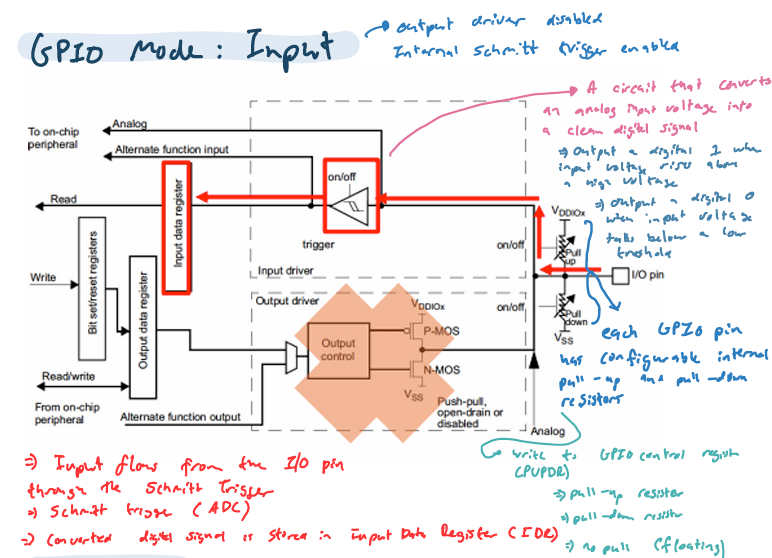 GPIO Mode: Input
output driver disabled
Internal Schmitt trigger enabled
A circuit that converts
an analog input voltage into
a clean digital signal
⇒ Output a digital 1 when
input voltage rises above
a high voltage
⇒ Output a digital 0
when input voltage
falls below a low
treshold
To on-chip
peripheral
Analog
Alternate function input
on/off
Read
trigger
Input data register
Input driver
on/off
VDDIOx
Pull
up
I/O pin
Write
Bit set/reset registers
Output data register
Output driver
VDDIOx
on/off
Pull
down
VSS
Output
control
P-MOS
N-MOS
VSS
Push-pull,
open-drain or
disabled
Read/write
From on-chip
peripheral
Alternate function output
Analog
each GPIO pin
has configurable internal
pull-up and pull-down
resistors
write to GPIO control register
(PUPDR)
⇒ pull-up resistor
⇒ pull-down resistor
⇒ no pull (floating)
⇒ Input flows from the I/O pin
through the Schmitt Trigger
⇒ Schmitt trigger (ADC)
⇒ Converted digital signal is stored in Input Data Register (IDR)